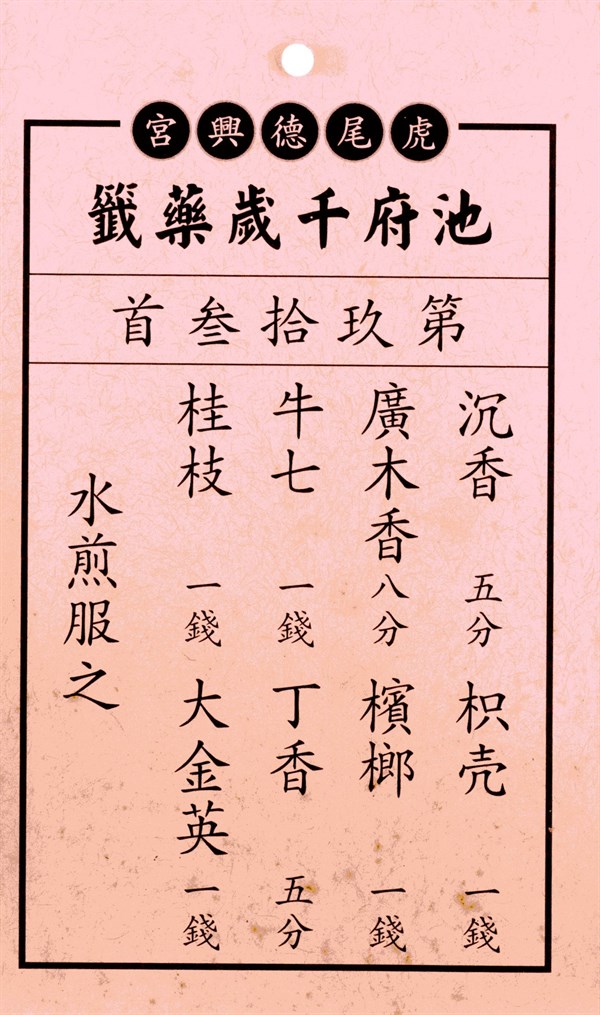 虎尾德興宮
池府千歲藥籤
第玖拾叁首
沉香 五分 枳壳 一錢
廣木香 八分 檳榔 一錢
牛七 一錢 丁香 五分
桂枝 一錢 大金英 一錢
水煎服之